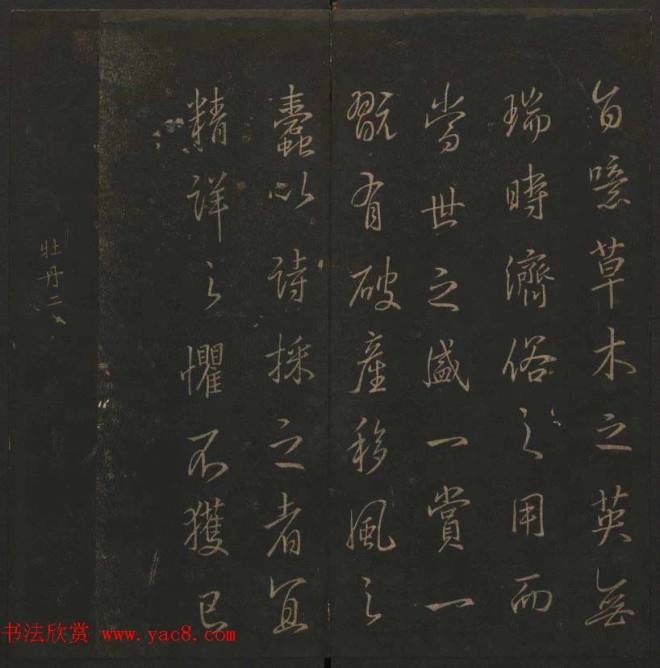 自噫草木之英無
瑞時濟俗之用而
當世之盛一賞一
翫有破產移風之
蠹以詩採之者宜
精詳之懼不獲已
牡丹二
书法欣赏 www.yac8.com